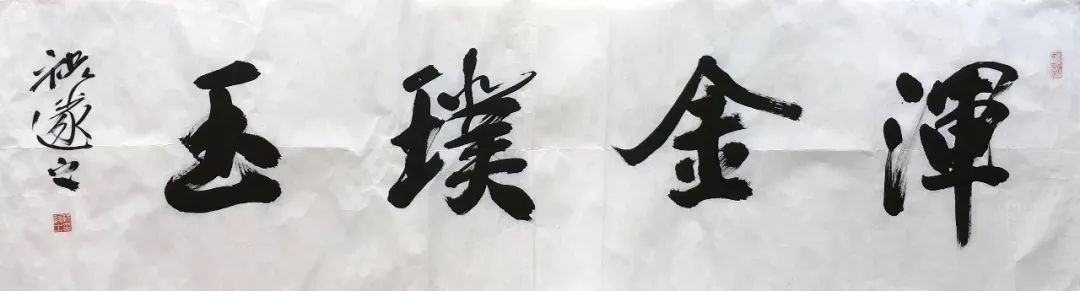 渾金璞玉
祝遂之